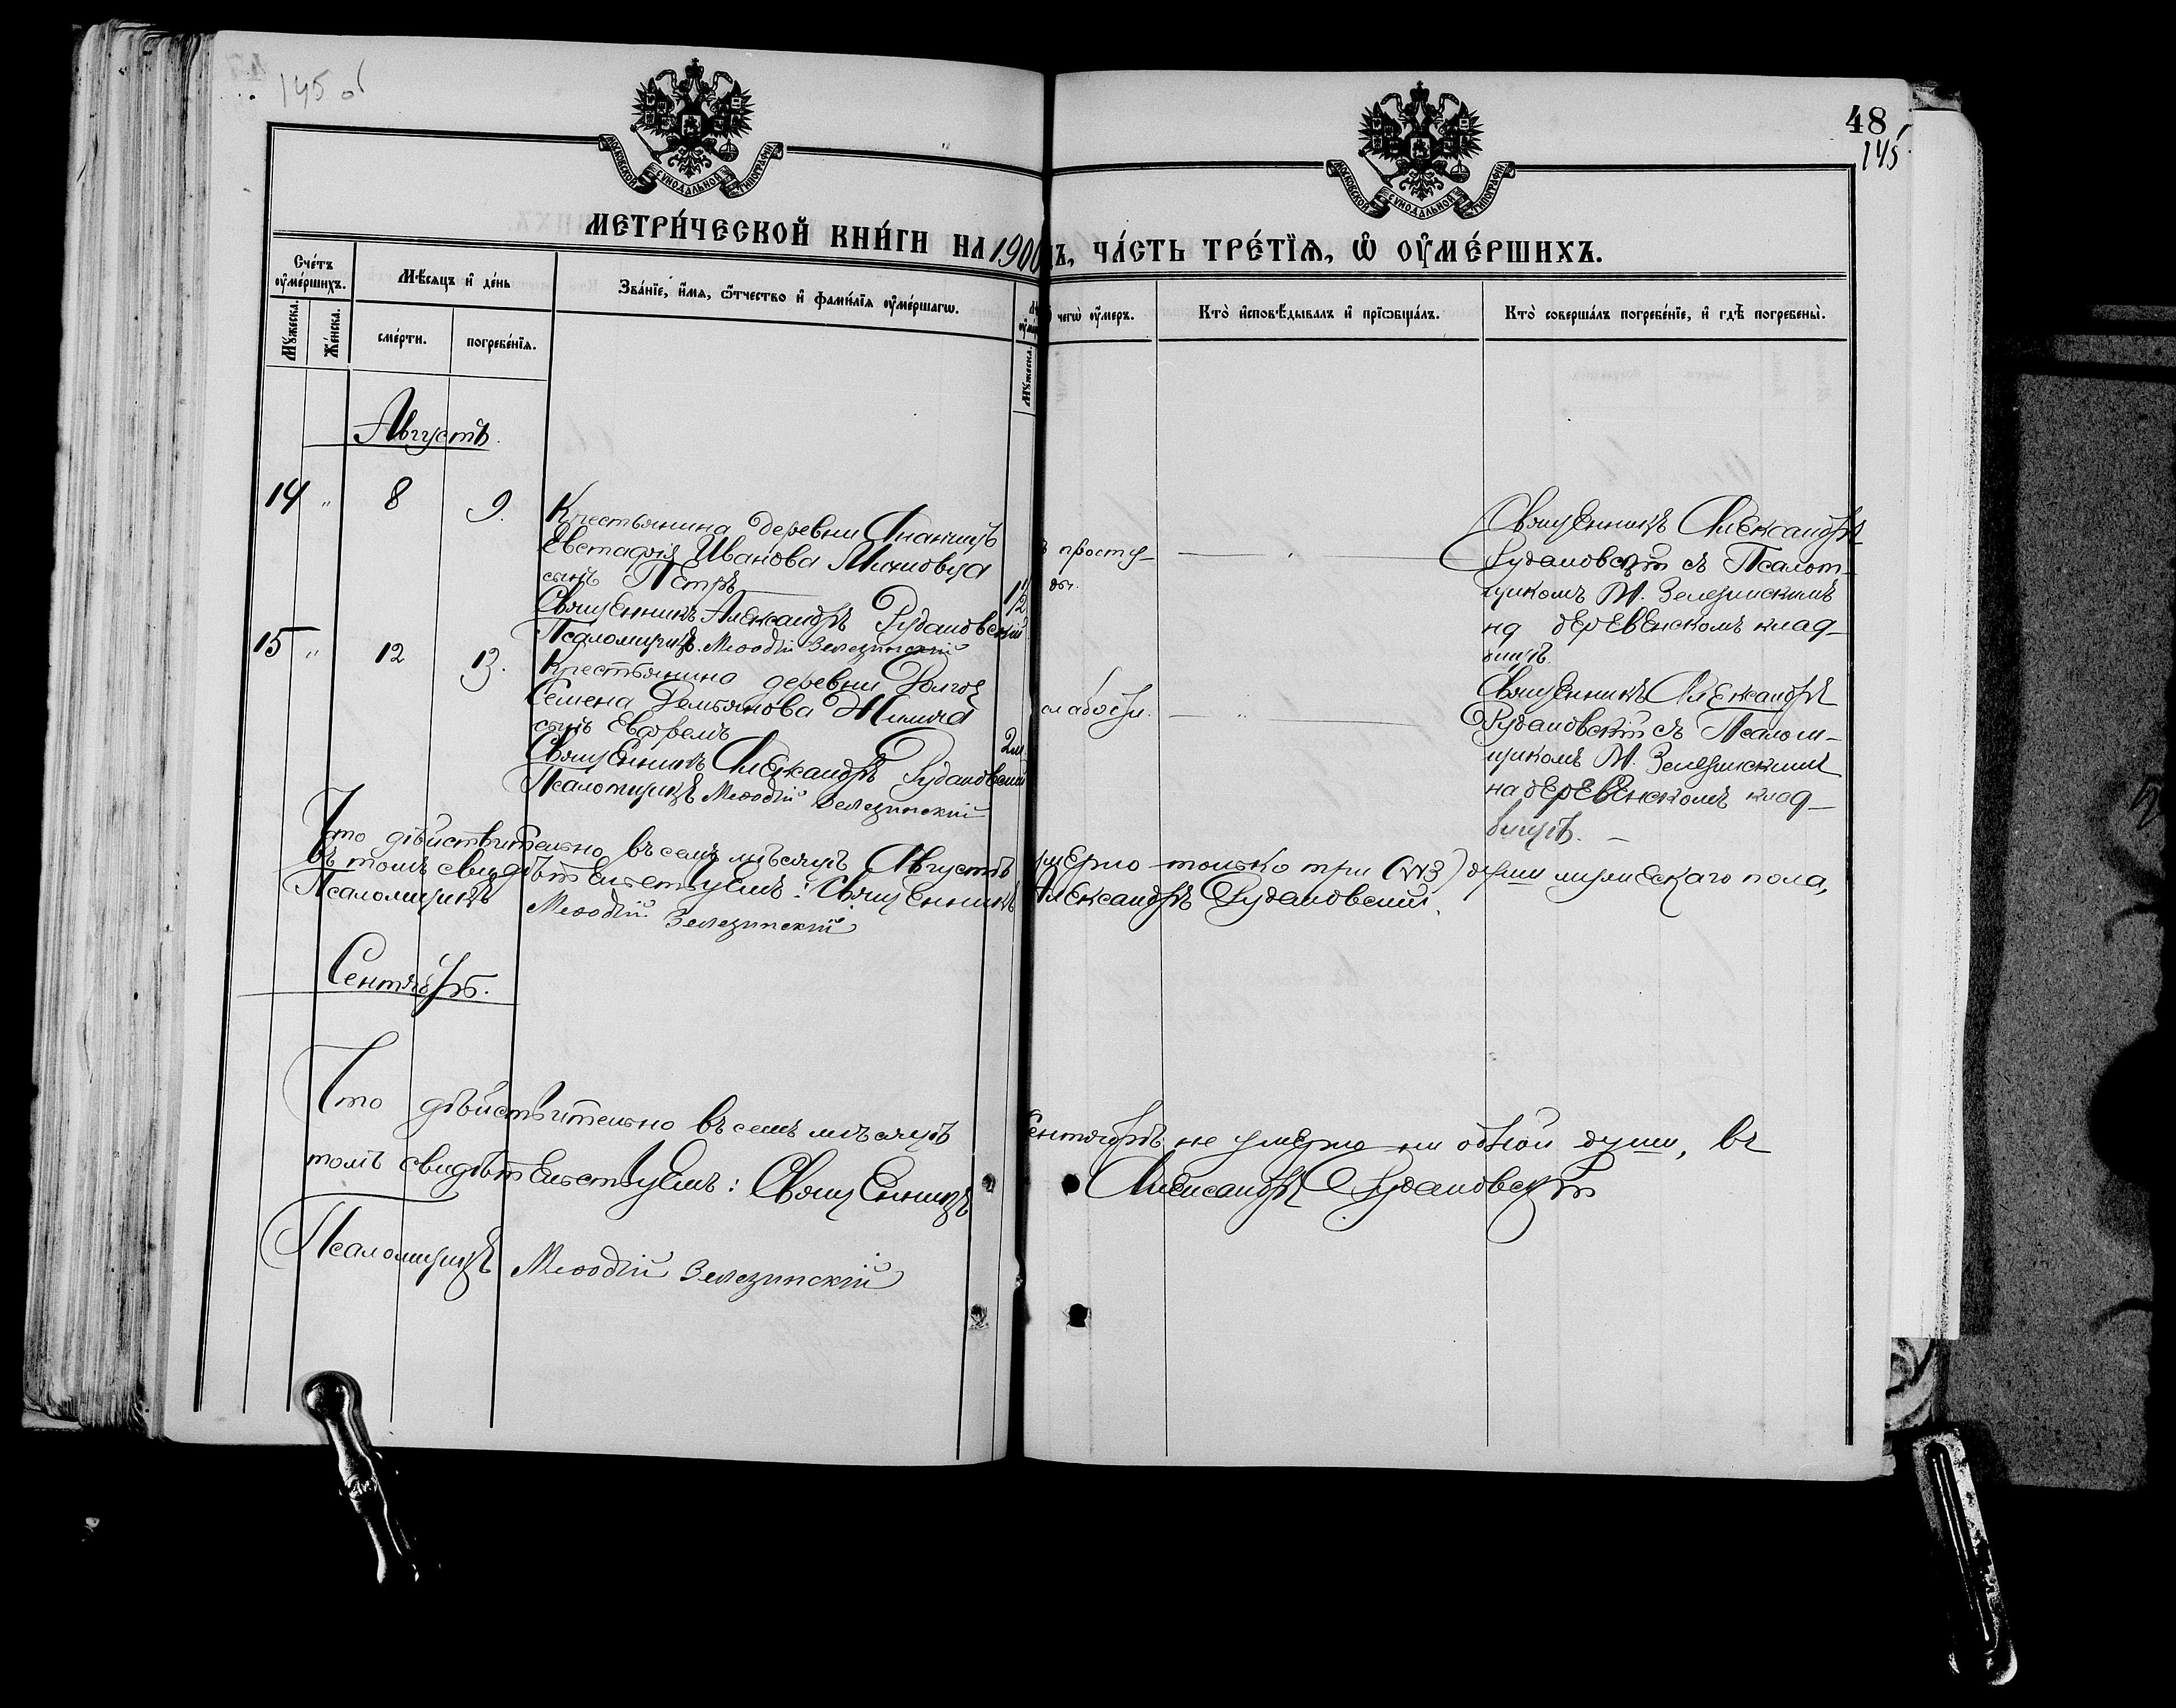 145 об
48
145
МОСКОВСКОЙ СѴНОДАЛЬНОЙ ТИПОГРАФІИ
МОСКОВСКОЙ СѴНОДАЛЬНОЙ ТИПОГРАФІИ
МЕТРИ́ЧЕСКОЙ КНИ́ГИ НА 1900 ДЪ, ЧА́СТЬ ТРЕ́ТЇѦ, Ѡ҆ ОУ҆МЕ́РШИХЪ.
Сче́тъ оу҆ме́ршихъ.
Мꙋ́жеска.
Же́нска.
Мѣ́сяцъ и҆ де́нь
сме́рти.
погребе́нїѧ.
Зва́нїе, и҆́мѧ, ѻ҆́тчество и҆ фами́лїѧ оу҆ме́ршагѡ.
Мꙋ́жеска.
чегѡ̀ оу҆́меръ.
Кто̀ и҆сповѣ́дывалъ и҆ прїѡбща́лъ.
Кто̀ соверша́лъ погребе́нїе, и҆ гдѣ̀ погребены̀.
Августъ.
14 " 8 9.
Крестьянина деревни Ананичъ
Евстафія Иванова
сынъ Петръ
1/2
Священникъ Александръ Рудаковскій
Псаломщикъ Меѳодій Зелезинскій
просту-
ды.
Священникъ Александръ
Рудаковскій съ Псалом-
щикомъ М. Зелезинскимъ
на деревенскомъ клад-
бищѣ.
15 " 12 13.
Крестьянина деревни Долгой
Семена Демьянова
сынъ Ефремъ
2м.
Священникъ Александръ Рудаковскій
Псаломщикъ Меѳодій Зелезинскій
слабости.
Священникъ Александръ
Рудаковскій съ Псалом-
щикомъ М. Зелезинскимъ
на деревенскомъ клад-
бищѣ. —
Что дѣйствительно въ семъ мѣсяцѣ Августѣ умерло только три (№3) души мужескаго пола,
въ томъ свидѣтельствуемъ: Священникъ Александръ Рудаковскій.
Псаломщикъ Меѳодій Зелезинскій
Сентябрь.
Что дѣйствительно въ семъ мѣсяцѣ Сентябрѣ не умерло ни одной души, въ
томъ свидѣтельствуемъ: Священникъ Александръ Рудаковскій
Псаломщикъ Меѳодій Зелезинскій